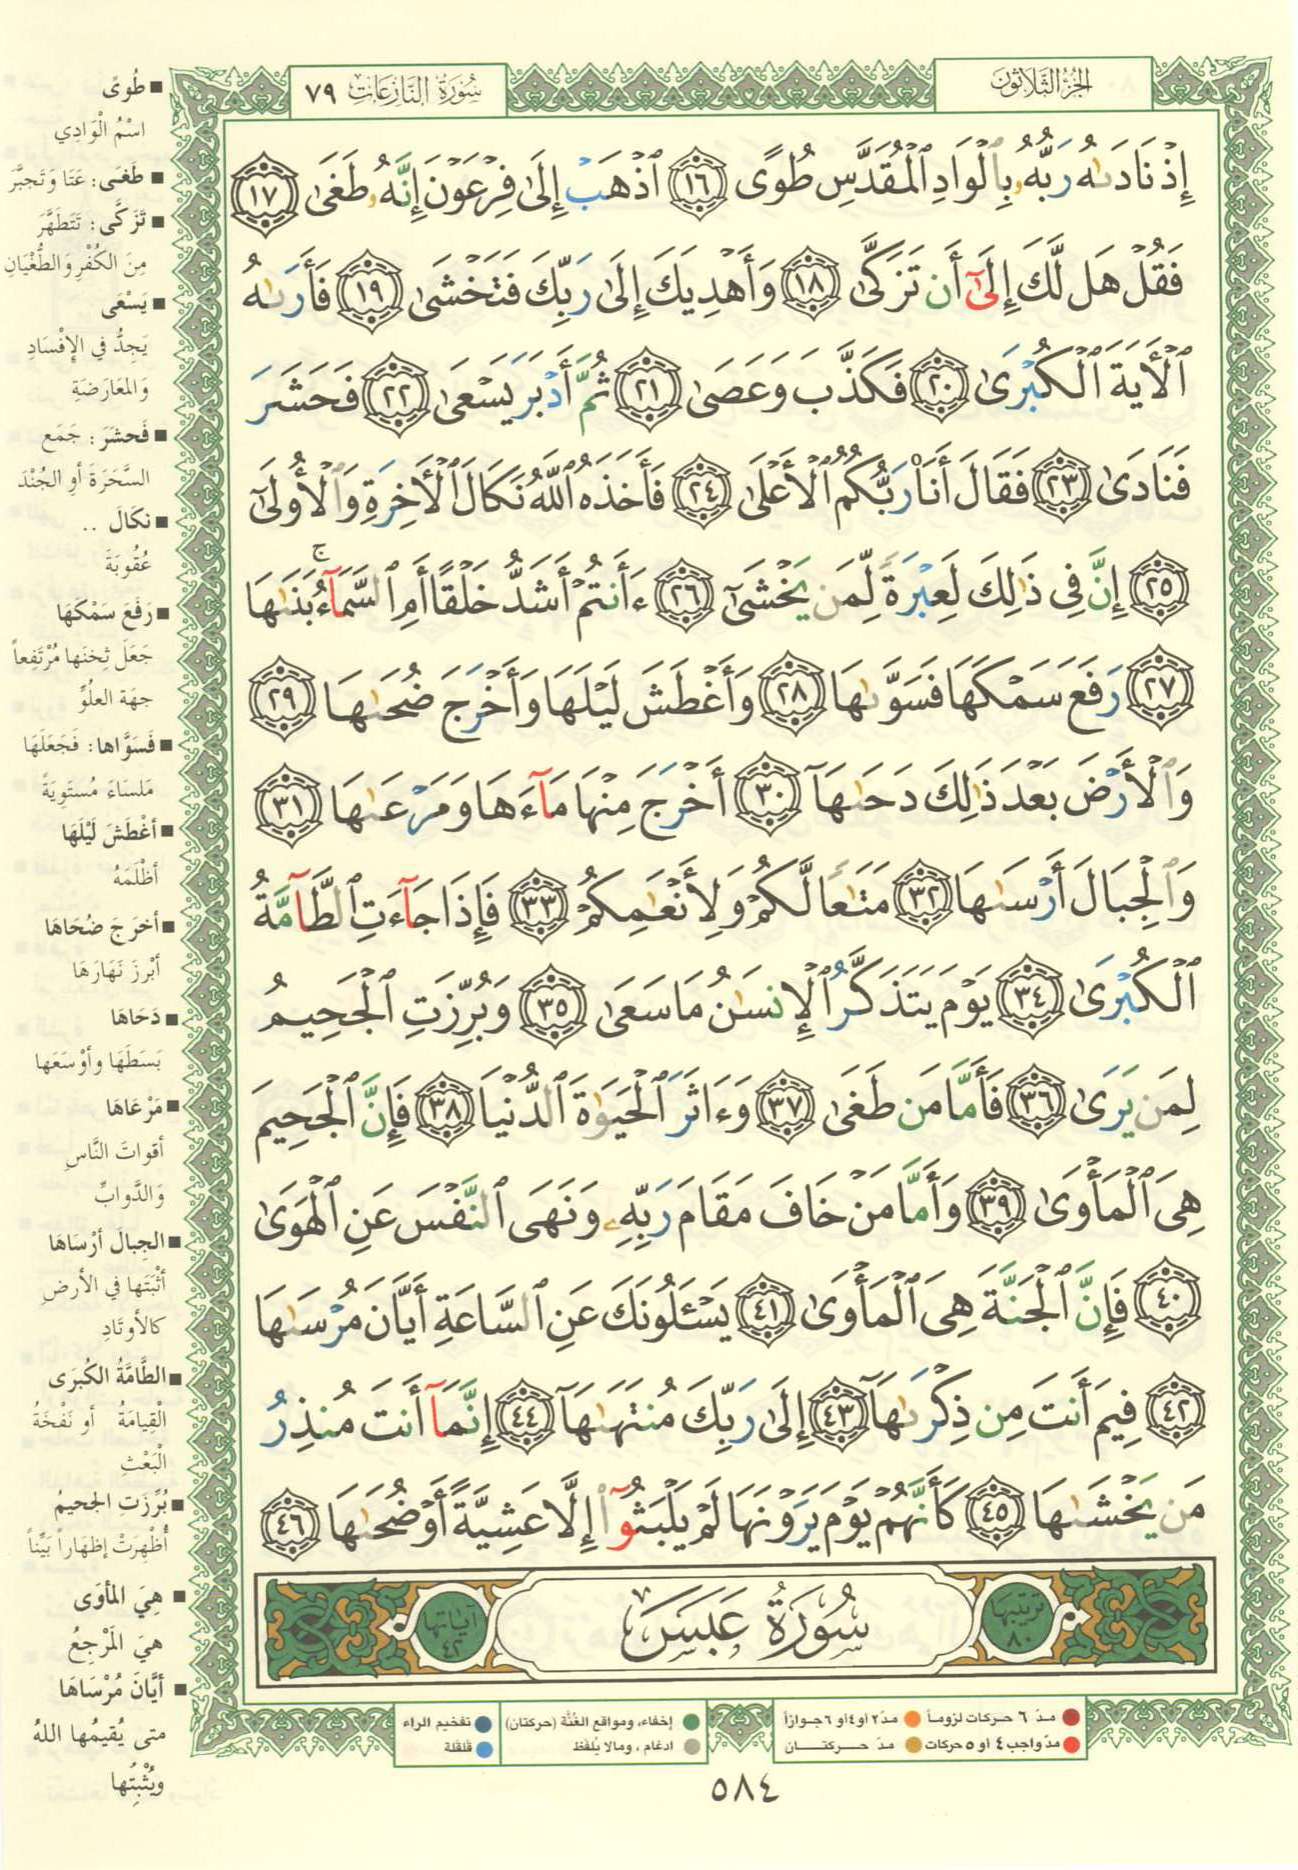 الجزء الثلاثون
سورة النازعات ٧٩
إِذْ نَادَىٰهُ رَبُّهُۥ بِٱلْوَادِ ٱلْمُقَدَّسِ طُوًى ١٦ ٱذْهَبْ إِلَىٰ فِرْعَوْنَ إِنَّهُۥ طَغَىٰ ١٧
فَقُلْ هَل لَّكَ إِلَىٰٓ أَن تَزَكَّىٰ ١٨ وَأَهْدِيَكَ إِلَىٰ رَبِّكَ فَتَخْشَىٰ ١٩ فَأَرَىٰهُ
ٱلْأَيَةَ ٱلْكُبْرَىٰ ٢٠ فَكَذَّبَ وَعَصَىٰ ٢١ ثُمَّ أَدْبَرَ يَسْعَىٰ ٢٢ فَحَشَرَ
فَنَادَىٰ ٢٣ فَقَالَ أَنَا۠ رَبُّكُمُ ٱلْأَعْلَىٰ ٢٤ فَأَخَذَهُ ٱللَّهُ نَكَالَ ٱلْأَخِرَةِ وَٱلْأُولَىٰٓ
٢٥ إِنَّ فِى ذَٰلِكَ لَعِبْرَةً لِّمَن يَخْشَىٰٓ ٢٦ ءَأَنتُمْ أَشَدُّ خَلْقًا أَمِ ٱلسَّمَآءُ ۚ بَنَىٰهَا
٢٧ رَفَعَ سَمْكَهَا فَسَوَّىٰهَا ٢٨ وَأَغْطَشَ لَيْلَهَا وَأَخْرَجَ ضُحَىٰهَا ٢٩
وَٱلْأَرْضَ بَعْدَ ذَٰلِكَ دَحَىٰهَآ ٣٠ أَخْرَجَ مِنْهَا مَآءَهَا وَمَرْعَىٰهَا ٣١
وَٱلْجِبَالَ أَرْسَىٰهَا ٣٢ مَتَٰعًا لَّكُمْ وَلِأَنْعَٰمِكُمْ ٣٣ فَإِذَا جَآءَتِ ٱلطَّآمَّةُ
ٱلْكُبْرَىٰ ٣٤ يَوْمَ يَتَذَكَّرُ ٱلْإِنسَٰنُ مَا سَعَىٰ ٣٥ وَبُرِّزَتِ ٱلْجَحِيمُ
لِمَن يَرَىٰ ٣٦ فَأَمَّا مَن طَغَىٰ ٣٧ وَءَاثَرَ ٱلْحَيَوٰةَ ٱلدُّنْيَا ٣٨ فَإِنَّ ٱلْجَحِيمَ
هِىَ ٱلْمَأْوَىٰ ٣٩ وَأَمَّا مَنْ خَافَ مَقَامَ رَبِّهِۦ وَنَهَى ٱلنَّفْسَ عَنِ ٱلْهَوَىٰ
٤٠ فَإِنَّ ٱلْجَنَّةَ هِىَ ٱلْمَأْوَىٰ ٤١ يَسْـَٔلُونَكَ عَنِ ٱلسَّاعَةِ أَيَّانَ مُرْسَىٰهَا
٤٢ فِيمَ أَنتَ مِن ذِكْرَىٰهَآ ٤٣ إِلَىٰ رَبِّكَ مُنتَهَىٰهَآ ٤٤ إِنَّمَآ أَنتَ مُنذِرُ
مَن يَخْشَىٰهَا ٤٥ كَأَنَّهُمْ يَوْمَ يَرَوْنَهَا لَمْ يَلْبَثُوٓا۟ إِلَّا عَشِيَّةً أَوْ ضُحَىٰهَا ٤٦
ترتيبها ٨٠
سُورَةُ عَبَسَ
آياتها ٤٢
■ طُوىً
اسْمُ الْوَادِي
■ طَغَى: عَتَا وَتَجبَّرَ
■ تَزَكَّى: تَتَطَهَّرَ
مِنَ الكُفْرِ وَالطُّغْيَانِ
■ يَسْعَى
يَجِدُّ في الإِفْسَادِ
وَالمَعَارَضةِ
■ فَحشَرَ: جَمَع
السَّحَرَةَ أو الجُنْدَ
■ نكَالَ ..
عُقُوبَةَ
■ رَفَعَ سَمْكَهَا
جَعَلَ ثِخنَها مُرْتَفِعاً
جِهَة العلُوِّ
■ فَسَوَّاها: فَجَعَلَهَا
مَلسَاءَ مُسْتَوِيَةً
■ أغْطَشَ لَيْلَهَا
أظْلَمَهُ
■ أخرَجَ ضُحَاهَا
أبْرزَ نَهَارَهَا
■ دَحَاهَا
بَسَطَهَا وأوْسَعَها
■ مَرْعَاهَا
أقواتَ النَّاسِ
وَالدَّوابِّ
■ الجِبالَ أرْسَاهَا
أثْبَتَها في الأرضِ
كالأوتَادِ
■ الطَّامَّةُ الكُبرَى
الْقِيامَةُ أو نَفْخَةُ
الْبَعْثِ
■ بُرِّزَتِ الجحيمُ
أُظْهِرَتْ إظهَاراً بَيِّناً
■ هِيَ المأوَى
هيَ المَرْجِعُ
■ أيَّانَ مُرْسَاهَا
متى يُقيمُها اللهُ
ويُثْبِتُها
مدّ ٦ حركات لزوماً مدّ ٢ او ٤ او ٦ جوازاً
مدّ واجب ٤ او ٥ حركات مدّ حركتان
إخفاء، ومواقع الغُنَّة (حركتان) تفخيم الراء
ادغام، ومالا يُلفظ قلقلة
٥٨٤